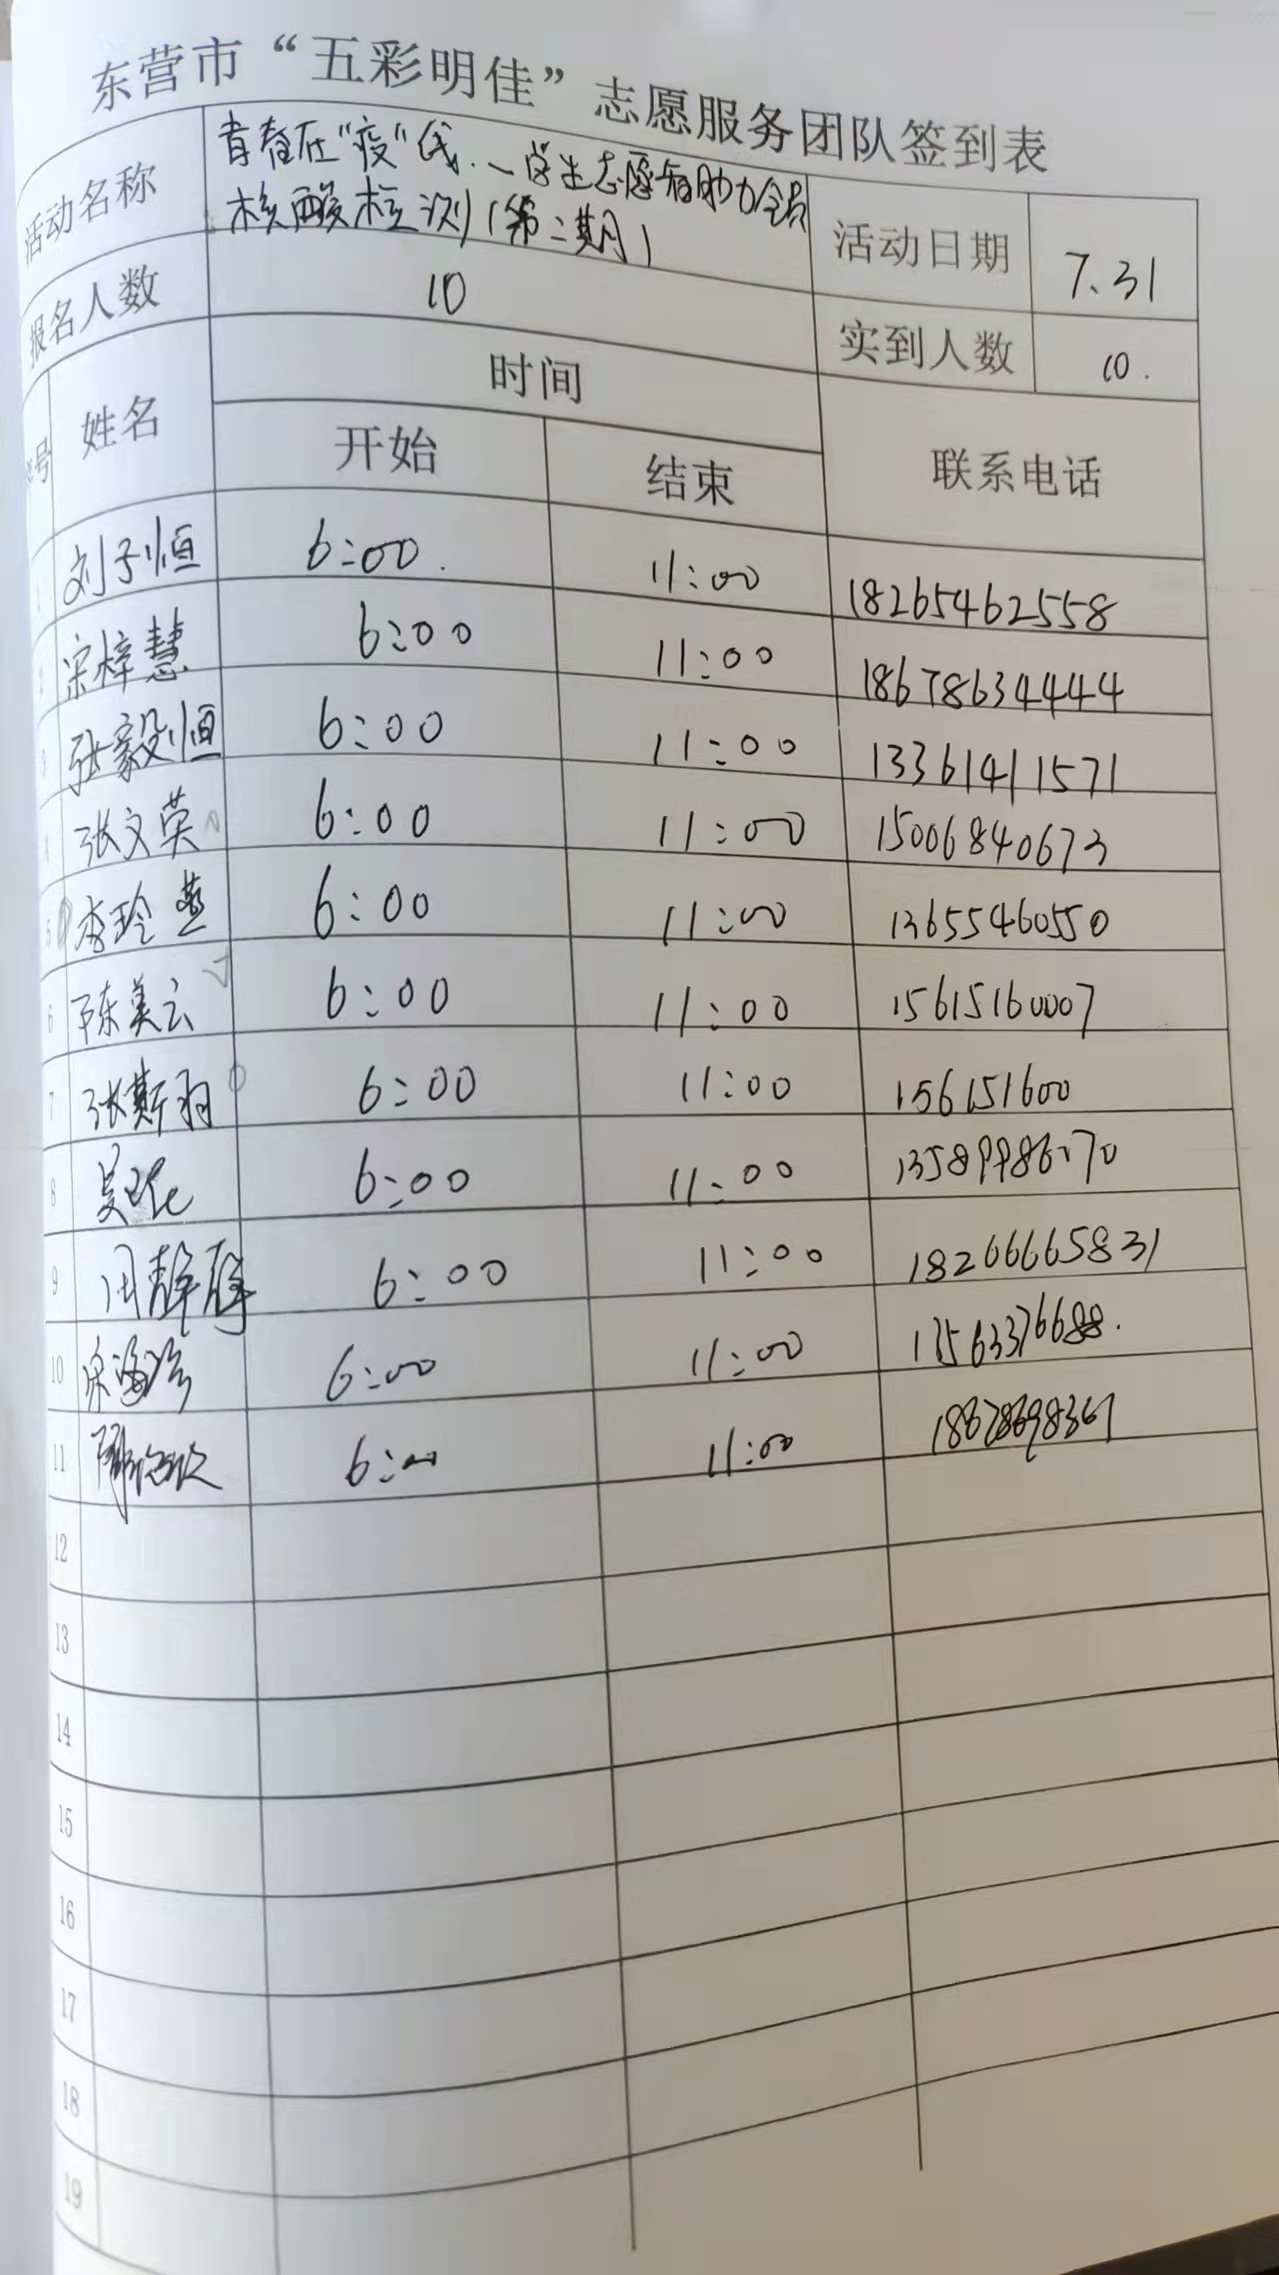 东营市“五彩明佳”志愿服务团队签到表
活动名称 青春在“疫”线.—学生志愿者助力全员
核酸检测(第二期) 活动日期 7.31
报名人数 10 实到人数 10.
序号 姓名 时间 联系电话
开始 结束
1 刘子恒 6:00. 11:00 18265462558
2 宋梓慧 6:00 11:00 18678634444
3 张毅恒 6:00 11:00 13361411571
4 张文英 6:00 11:00 15006840673
5 李玲燕 6:00 11:00 13655460550
6 陈美云 6:00 11:00 15615160007
7 张斯羽 6:00 11:00 156151600
8 6:00 11:00
9 周静静 6:00 11:00 18266665831
10 6:00 11:00
11 6:00 11:00
12
13
14
15
16
17
18
19